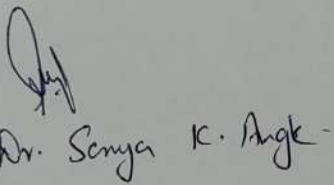 Dr. Sanya K. Angk-